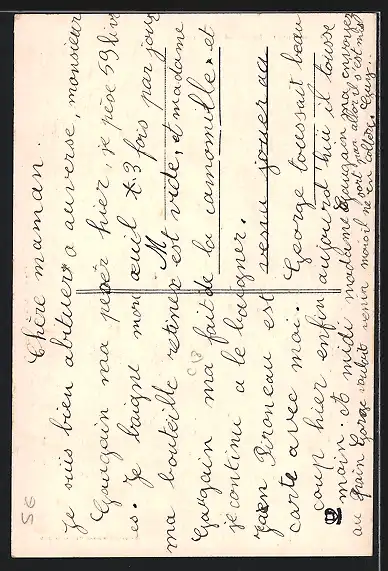 Chère maman.
je suis bien abituer a auverse, monsieur
Gaugain ma peser hier, je pèse 59 livr
es. Je baigne mon œuiel 3 fois par jour
ma bouteille est vide, M et madame
Gaugain ma fait de la camomille. et
je continu a le baigner.
Jean Pironeau est venu jouer au
carte avec moi. George toussait beau
coup hier enfin aujourd hui il tousse
main. A midi madame Gaugain ma envoyez
au pain George voulait venir
moi il ne en colère. Guy
56